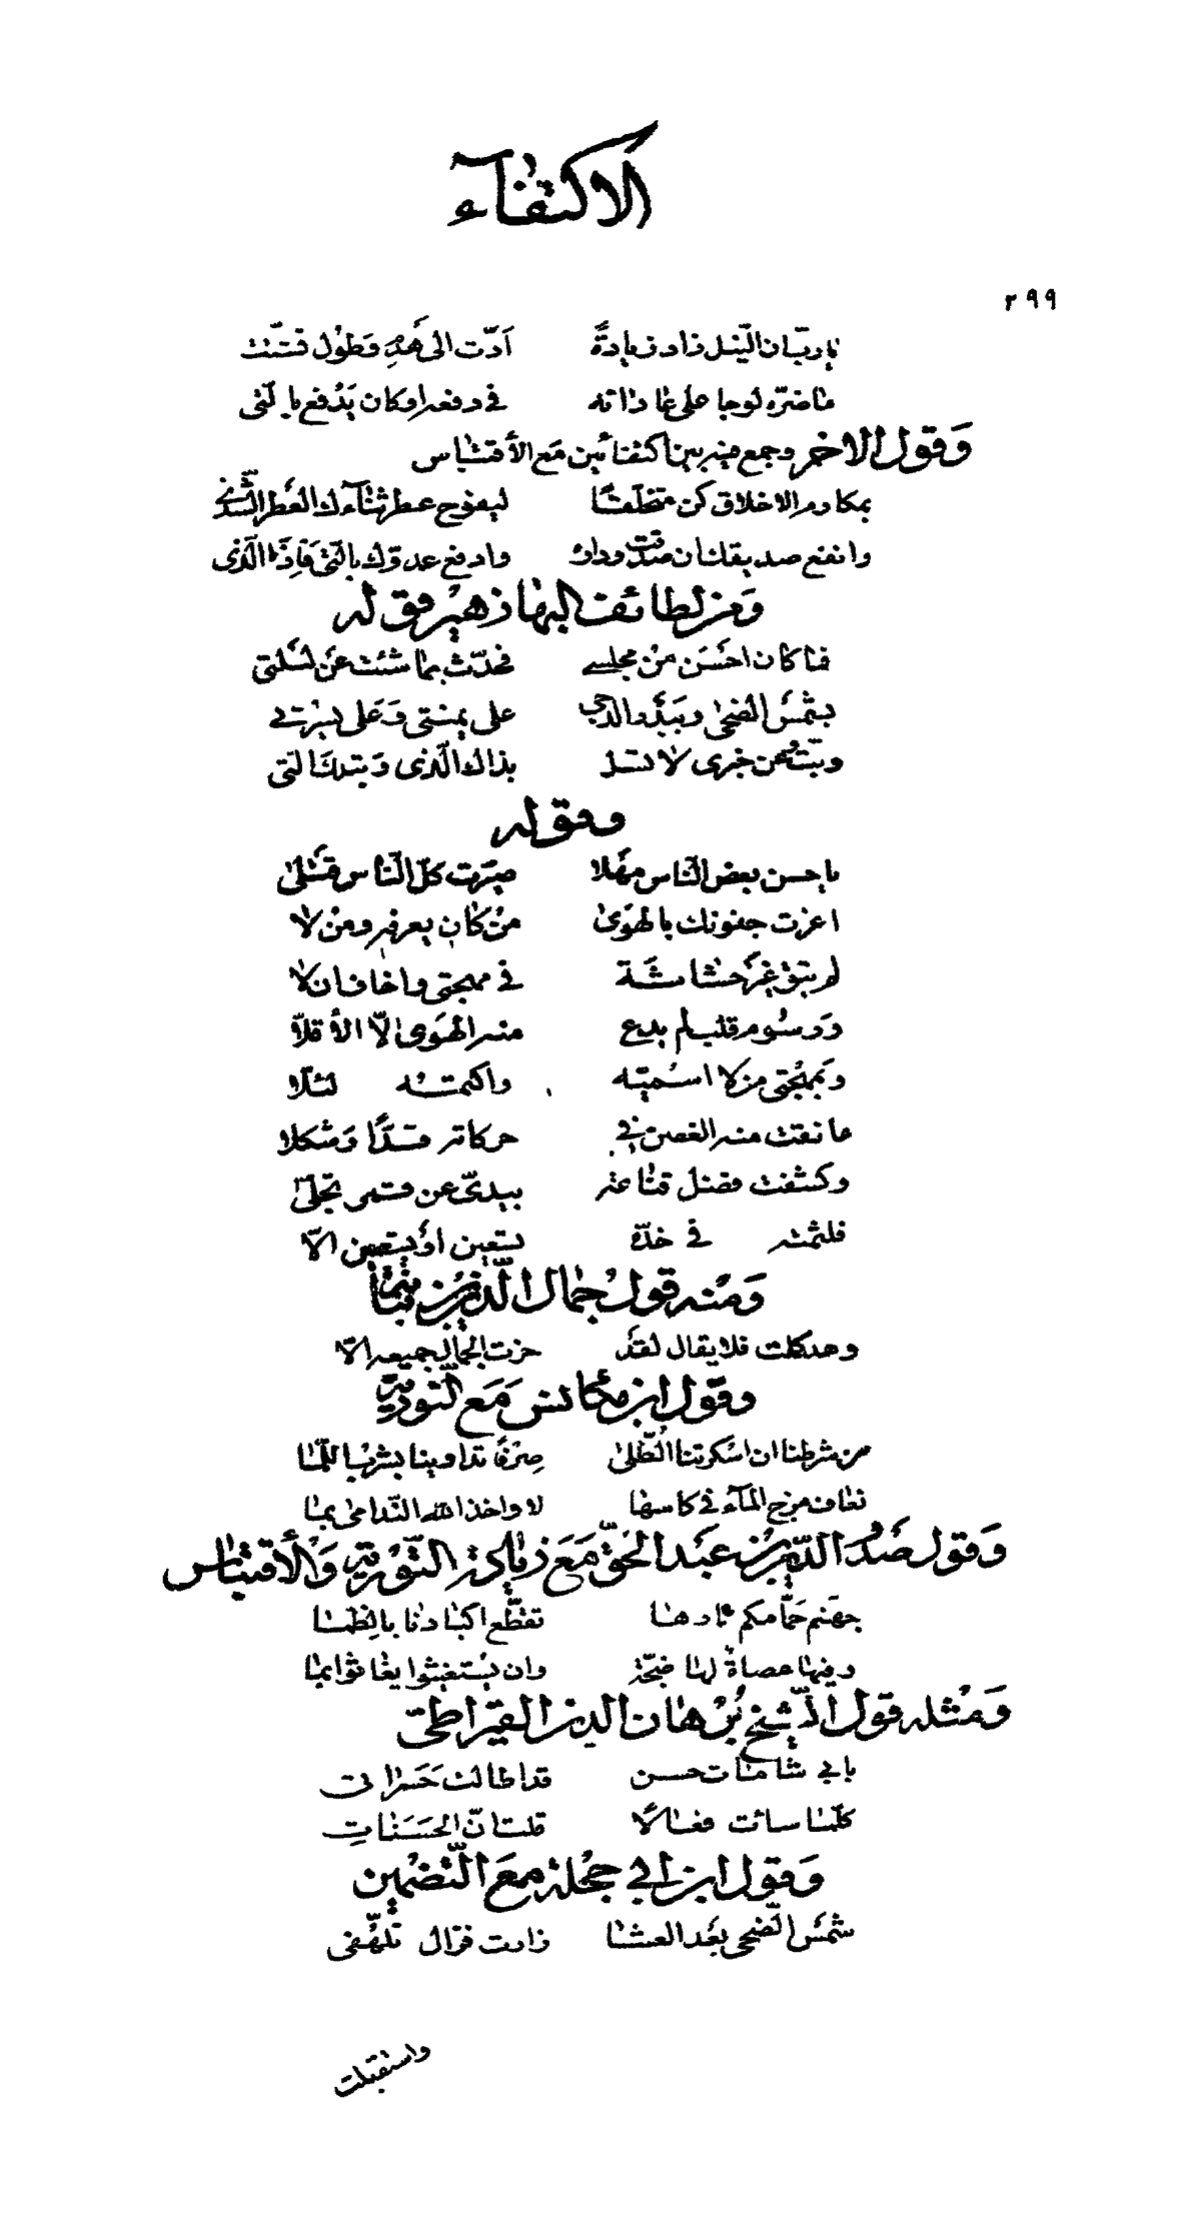 الاكتفاء
٢٩٩
يا ربّ ان النيل زاد زيادةً ادّت الى هدم وطول تشتّت
ما ضرّه لو جا على عاداته في دفعه او كان يدفع بالّتي
وقول الاخر وجمع فيه بين اكتفائين مع الأقتباس
بمكارم الاخلاق كن متخلّقًا ليفوح عطر ثنآءك العَطر الشّذي
وانفع صديقك ان صدقت وداده وادفع عدوّك بالّتي فَاِذَا الّذي
ومن لطائف البهاء زهير قوله
فما كان احسَنَ من مجلسي فحدّث بما شئت عن لَيلتي
بشمسِ الضّحى وببدر الدجى على يمنتي وَعَلى يسرتي
وبتّ وعن خبري لا تسل بذاك الّذي وبتلك الّتي
وقوله
يا حسن بعض النّاس مهلا صيّرت كلّ النّاس قتلى
اغزت جفونك بالهوى من كان يعرفه ومن لا
لم يبق غير حشاشة في مهجتي واخاف ان لا
ورسوم قلب لم يدع منه الهوى الّا الأقلّا
وبمهجتي من لا اسمّيه واكتمه لئلّا
عانقت منه الغصن في حركاته قدًّا وشكلا
وكشفت فضل قناعه بيديّ عن قمر تجلّى
فلثمته في خدّه تسعين او تسعين الّا
ومنه قول جمال الدّين بن نباتة
وهد كملت فلا يقال لقد حزت الجمال جميعه الّا
وقول ابن مكانس مع التّورية
من شرطنا ان اسكرتنا الطّلى صرفًا تداوينا بشرب اللّما
نعاف مزج المآء في كاسها لا واخذ الله النّدامى بما
وقول صدر الدّين بن عبد الحقّ مع زيادة التّورية والأقتباس
جهنم حمّامكم نارها تقطّع اكبادنا بالظما
وفيها عصاة لها ضجّة وان يستغيثوا يغاثوا بما
ومثله قول الشّيخ برهان الدين القيراطي
بابي شامات حسن قد اطالت حسراتي
كلّما سائت فعالًا قلت انّ الحسنات
وقول ابن ابي حجلة مع التّضمين
شمس الضحى بعد العشا زارت فزال تلهّفي
واستقبلت